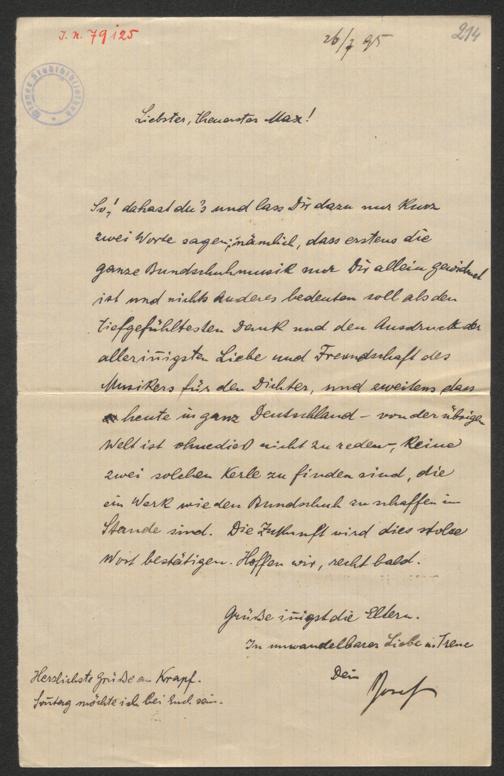 I. N. 79125
26/7 95
214
Wiener Stadtbibliothek
Liebster, theuerster Max!
So! da hast du's und lass Dir dazu nur kurz
zwei Worte sagen; nämlich, dass erstens die
ganze Bundschuhmusik nur Dir allein gewidmet
ist und nichts Anderes bedeuten soll als den
tiefgefühltesten Dank und den Ausdruck der
allerinnigsten Liebe und Freundschaft des
Musikers für den Dichter, und zweitens, dass
heute in ganz Deutschland – von der übrigen
Welt ist ohnedies nicht zu reden –, keine
zwei solchen Kerle zu finden sind, die
ein Werk wie den Bundschuh zu schaffen im
Stande sind. Die Zukunft wird dies stolze
Wort bestätigen. Hoffen wir, recht bald.
Grüße innigst die Eltern.
In unwandelbarer Liebe u. Treue
Dein
Josef
Herzlichste Grüße an Krapf.
Sonntag möchte ich bei Euch sein.